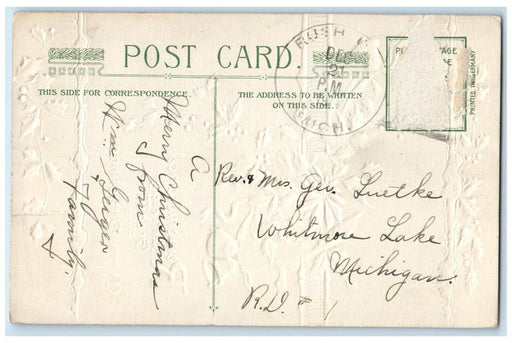 POST CARD.
THIS SIDE FOR CORRESPONDENCE.
THE ADDRESS TO BE WRITTEN
ON THIS SIDE.
RUSH
DEC
21
P.M.
MICH.
PRINTED IN GERMANY
A
Merry Christmas
from
Wm. Geiger
Family.
Rev. & Mrs. Geo. Luetke
Whitmore Lake
Michigan.
R.D. # 1